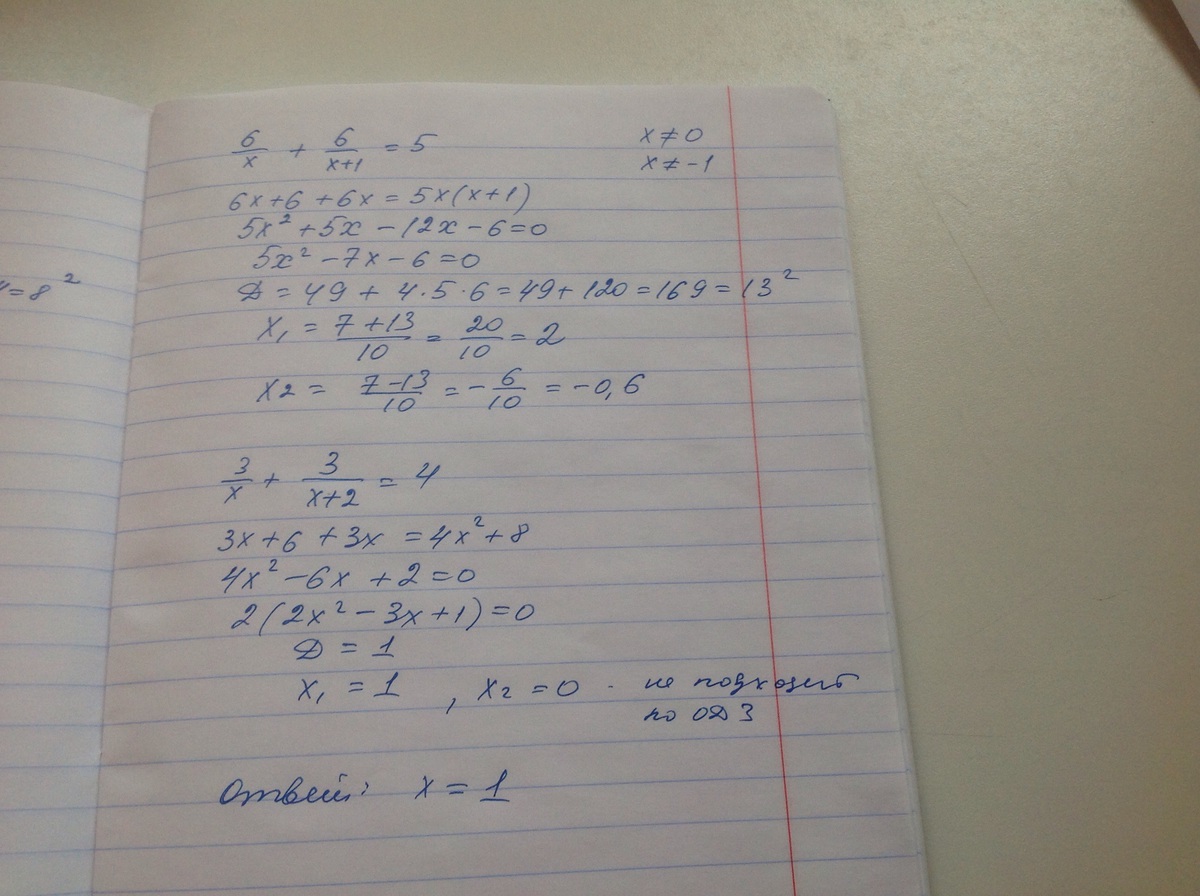 6/x + 6/(x+1) = 5    x ≠ 0
x ≠ -1
6x+6 +6x = 5x(x+1)
5x² +5x -12x -6=0
5x² -7x -6 =0
=8²
D = 49 + 4·5·6 = 49+ 120 = 169 = 13²
x₁ = (7+13)/10 = 20/10 = 2
x2 = (7-13)/10 = -6/10 = -0,6
3/x + 3/(x+2) = 4
3x+6 +3x = 4x²+8
4x² -6x +2 =0
2(2x² -3x+1)=0
D = 1
x₁ = 1 , x₂ = 0 - не подходит
по ОДЗ
Ответ: x = 1